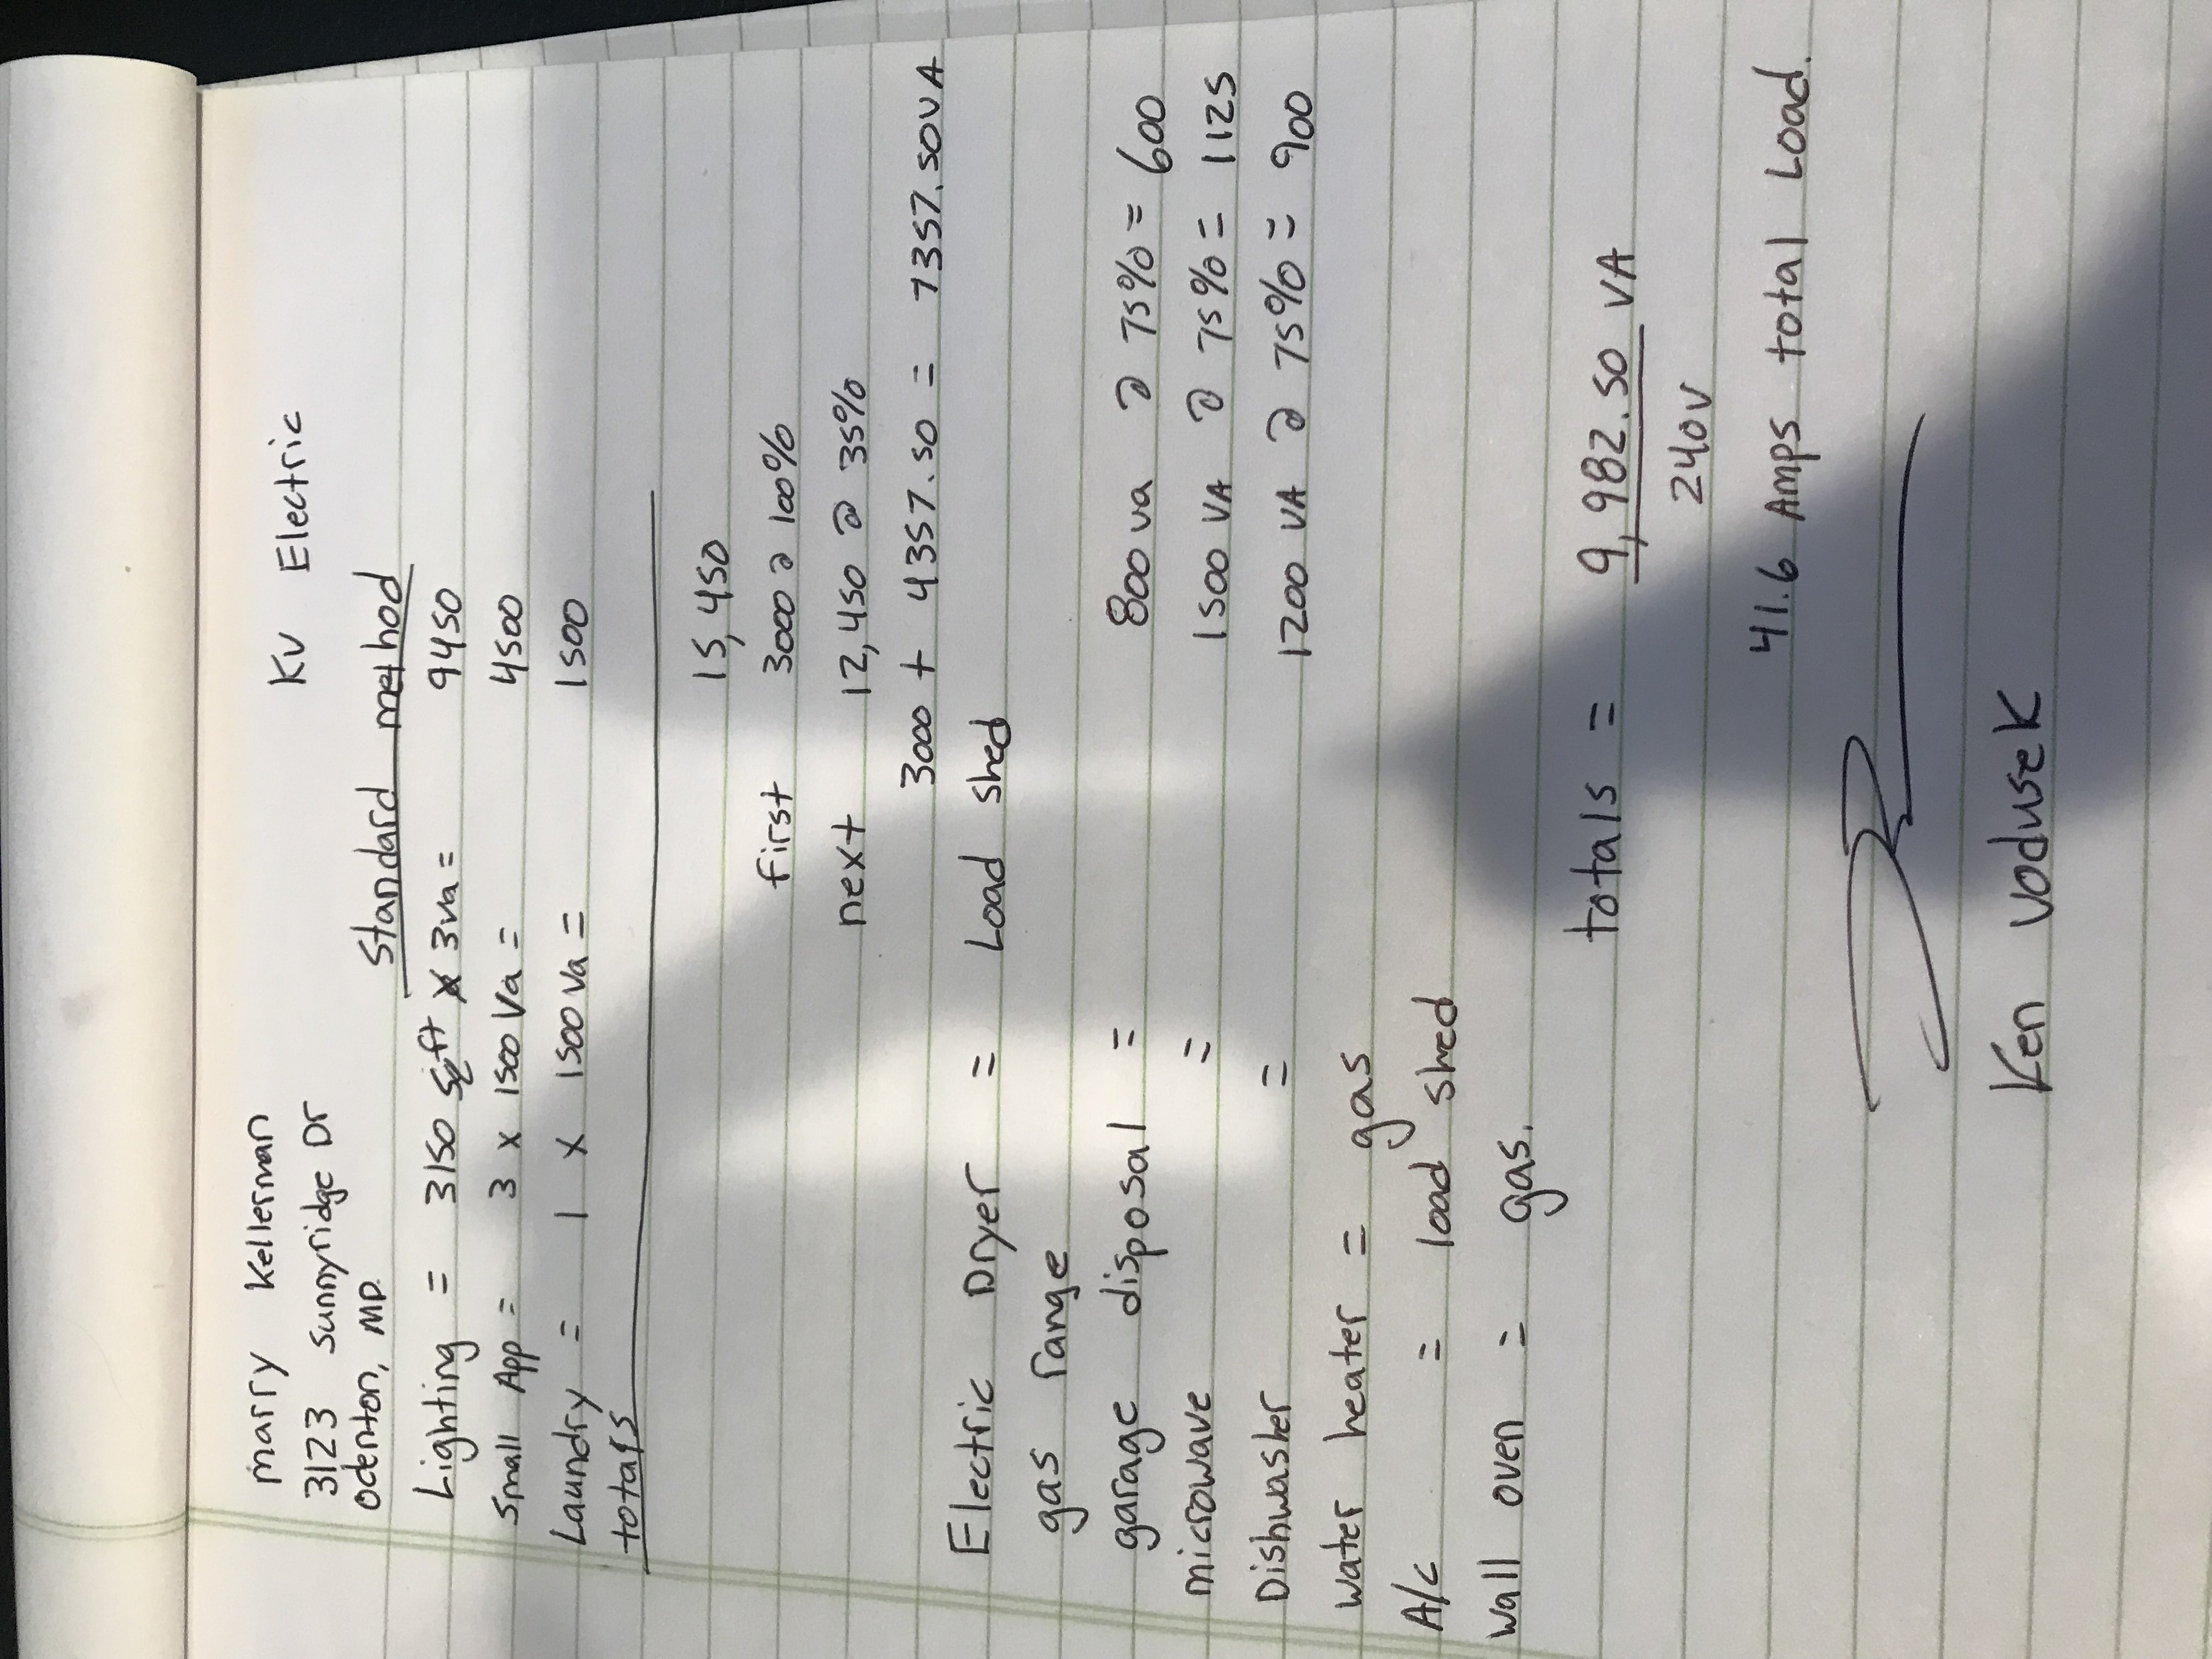 marry Kellerman KV Electric
3123 sunnyridge Dr
odenton, MD.
Standard method
Lighting = 3150 sqft x 3va = 9450
Small App = 3 x 1500 Va = 4500
Laundry = 1 x 1500 Va = 1500
totals
15,450
first 3000 @ 100%
next 12,450 @ 35%
3000 + 4357.50 = 7357.50VA
Electric Dryer = Load shed
gas range
garage disposal = 800 va @ 75% = 600
microwave = 1500 VA @ 75% = 1125
Dishwasher = 1200 VA @ 75% = 900
water heater = gas
A/C = load shed
wall oven = gas.
totals = 9,982.50 VA
240V
41.6 Amps total Load.
Ken Vodusek